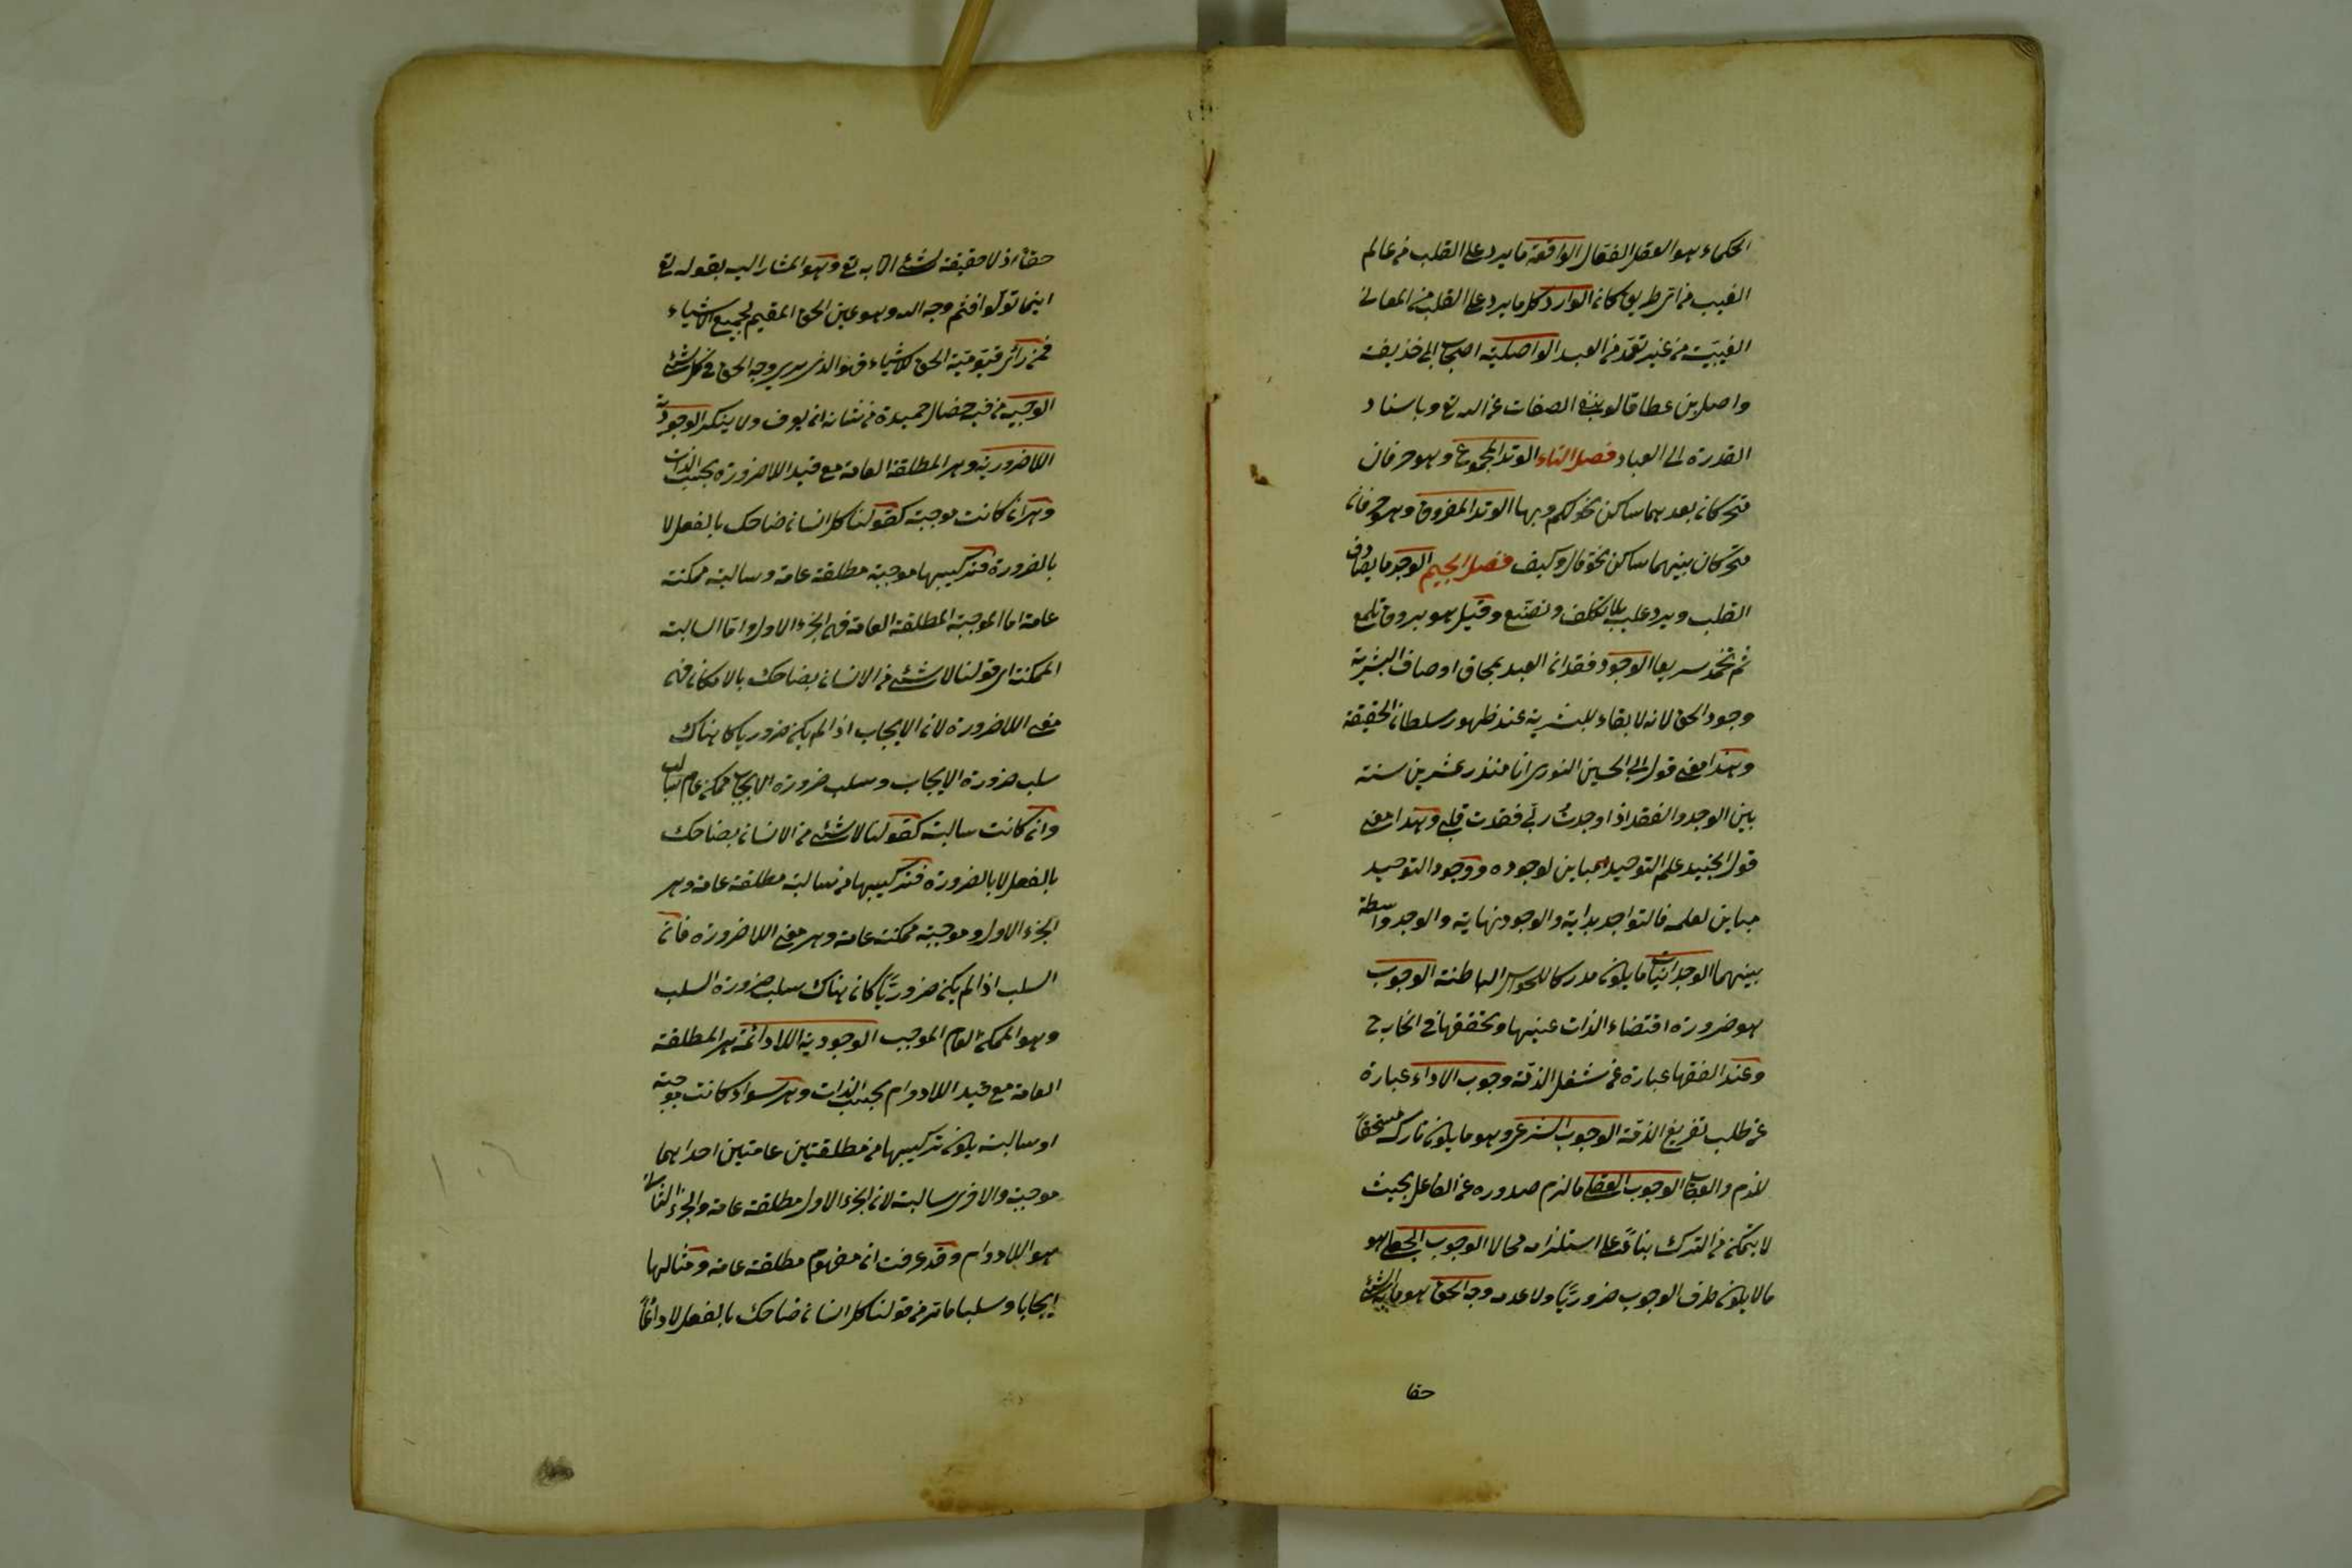 الحكماء هو العقل الفعال الواقعة ما يرد على القلب من عالم
الغيب من اى طريق كان الوارد كل ما يرد على القلب من المعانى
الغيبيّة من غير تعمّد من العبد الواصليّة اصحاب ابى حذيفة
واصل بن عطا قالوا بنفى الصفات عن الله تع وباسناد
القدرة الى العباد فصل التاء الوتد المجموع وهو حرفان
متحركان بعدهما ساكن نحو لكم وبها الوتد المفروق وهو حرفان
متحركان بينهما ساكن نحو قال وكيف فصل الجيم الوجد ما يصادف
القلب ويرد عليه بلا تكلف وتصنع وقيل هو بروق تلمع
ثم تخمد سريعا الوجود فقدان العبد بمحاق اوصاف البشرية
وجود الحق لانه لا بقاء للبشرية عند ظهور سلطان الحقيقة
وهذا معنى قول ابى الحسين النورى انا منذ عشرين سنة
بين الوجد والفقد اذا وجدتُ ربّى فقدت قلبى وهذا معنى
قول الجنيد علم التوحيد مباين لوجوده ووجود التوحيد
مباين لعلمه فالتواجد بداية والوجود نهاية والوجد واسطة
بينهما الوجدانيات ما يكون مدركا للحواس الباطنة الوجوب
هو ضرورة اقتضاء الذات عينها وتحققها فى الخارج
وعند الفقها عبارة عن شغل الذمّة وجوب الاداء عبارة
عن طلب تفريغ الذمّة الوجوب الشرعى وهو ما يكون تاركه مستحقاً
للذم والعقاب الوجوب العقلى ما لزم صدوره عن الفاعل بحيث
لا يتمكن من الترك بناءً على استلزامه محالا الوجوب الجعلى هو
ما لا يكون طرف الوجوب ضروريّا ولا عدمه وجه الحق هو ما به الشئ
حقا
حقاً اذ لا حقيقة لشئ الا به تع وهو المشار اليه بقوله تع
اينما تولّوا فثم وجه الله وهو عين الحق المقيم لجميع الاشياء
فمن رأى قيّوميّة الحق للاشياء فهو الذى يرى وجه الحق فى كل شئ
الوجيه من فيه خصال حميدة من شانه ان يعرف ولا ينكر الوجودية
اللاضرورية وهى المطلقة العامة مع قيد اللاضرورة بحسب الذات
وهى ان كانت موجبة كقولنا كل انسان ضاحك بالفعل لا
بالضرورة فتركيبها من موجبة مطلقة عامة وسالبة ممكنة
عامة اما الموجبة المطلقة العامة فهى الجزء الاول واما السالبة
الممكنة اى قولنا لا شئ من الانسان بضاحك بالامكان فهى
معنى اللاضرورة لان الايجاب اذا لم يكن ضروريا كا هناك
سلب ضرورة الايجاب وسلب ضرورة الايجاب ممكن عام سالب
وان كانت سالبة كقولنا لا شئ من الانسان بضاحك
بالفعل لا بالضرورة فتركيبها من سالبة مطلقة عامة وهى
الجزء الاول وموجبة ممكنة عامة وهى معنى اللاضرورة فان
السلب اذا لم يكن ضروريًّا كان هناك سلب ضرورة السلب
وهو الممكن العام الموجب الوجودية اللادائمة هى المطلقة
العامة مع قيد اللادوام بحسب الذات وهى سواء كانت موجبة
او سالبة يكون تركيبها من مطلقتين عامتين احداهما
موجبة والاخرى سالبة لان الجزء الاول مطلقة عامة والجزء الثانى
هو اللادوام وقد عرفت ان مفهوم مطلقة عامة ومثالها
ايجابا وسلبا ما مرّ من قولنا كل انسان ضاحك بالفعل لا دائماً